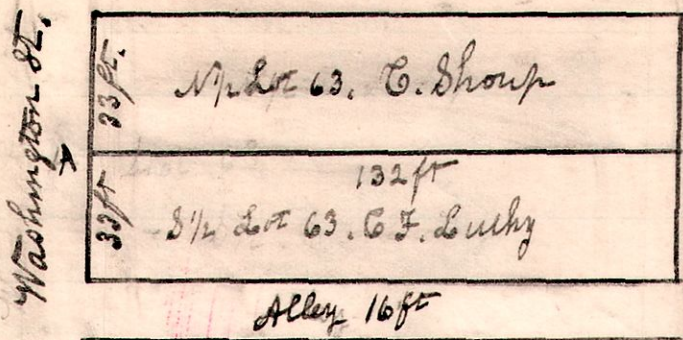 Washington St.
33 ft.
N½ Lot 63. C. Shoup
33 ft
132 ft
S½ Lot 63. C F. Luchy
Alley 16 ft